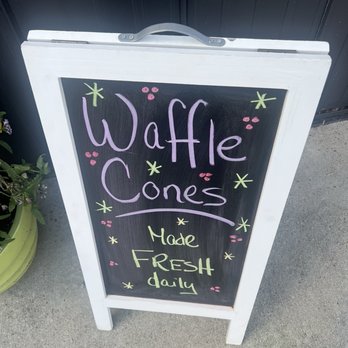 Waffle
Cones
Made
FRESH
daily